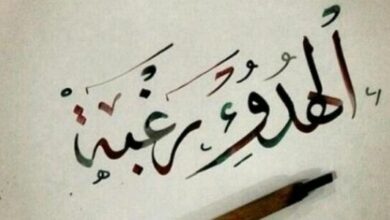 الهُدُوءُ رَغْبَةْ